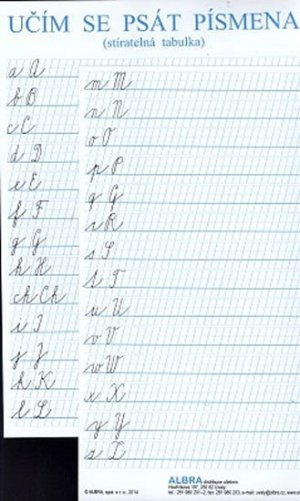 UČÍM SE PSÁT PÍSMENA
(stíratelná tabulka)
a A
b B
c C
d D
e E
f F
g G
h H
ch Ch
i I
j J
k K
l L
m M
n N
o O
p P
q Q
r R
s S
t T
u U
v V
w W
x X
y Y
z Z
ALBRA
© ALBRA, spol. s r. o., 2014